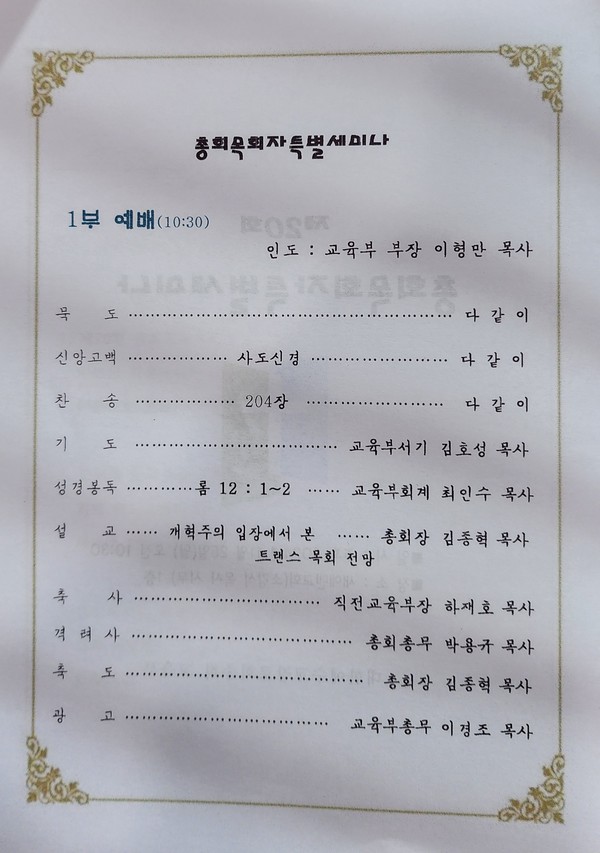 총회목회자특별세미나
1부 예배(10:30)
인도 : 교육부 부장 이형만 목사
묵 도 ………………………………………………… 다 같 이
신앙고백 ……………… 사도신경 …………………… 다 같 이
찬 송 ……………… 204장 …………………… 다 같 이
기 도 ……………………………… 교육부서기 김호성 목사
성경봉독 …………롬 12 : 1~2 …… 교육부회계 최인수 목사
설 교…… 개혁주의 입장에서 본 …… 총회장 김종혁 목사
트랜스 목회 전망
축 사 …………………………… 직전교육부장 하재호 목사
격 려 사 ………………………………… 총회총무 박용규 목사
축 도 ……………………………………… 총회장 김종혁 목사
광 고 ……………………………… 교육부총무 이경조 목사